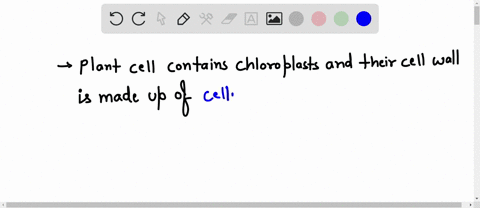 → Plant cell contains chloroplasts and their cell wall
is made up of cell.